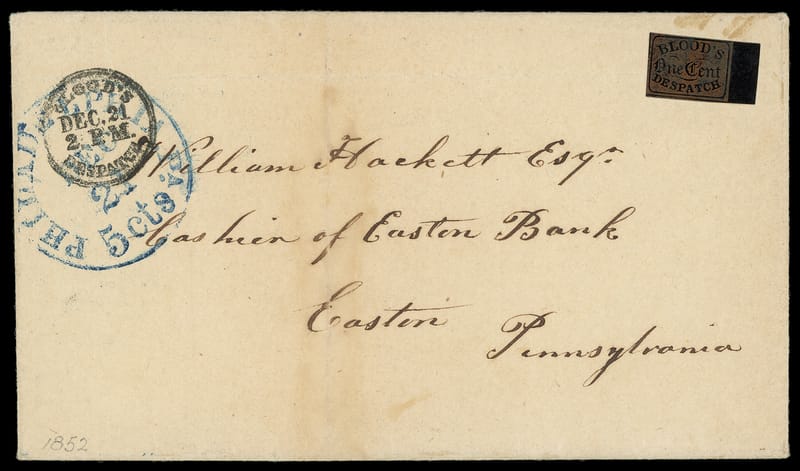 BLOOD'S
One Cent
DESPATCH
BLOOD'S
DEC. 21
2. P.M.
DESPATCH
PHILADELPHIA Pa.
21
5cts
William Hackett Esqr.
Cashier of Easton Bank
Easton
Pennsylvania
1852